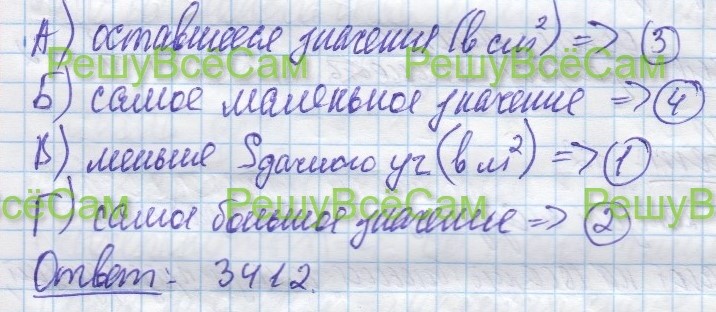 А) оставшееся значение (в см²) => ③
РешуВсёСам РешуВсёСам
Б) самое маленькое значение => ④
В) меньше Sдачного уч (в м²) => ①
сёСам РешуВсёСам РешуВсё
Г) самое большое значение => ②
Ответ: 3412.